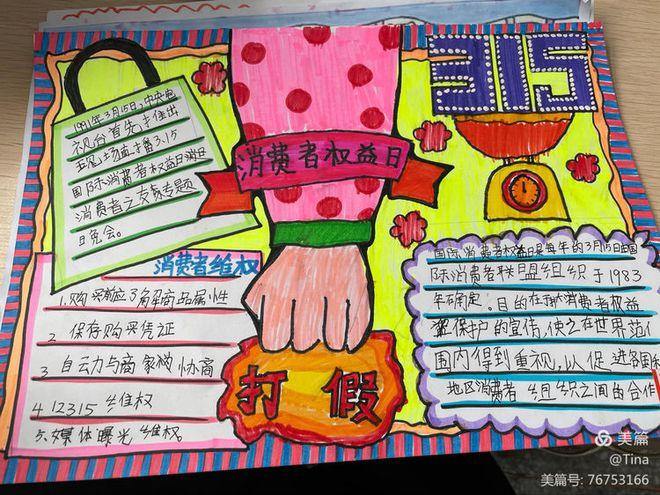 315
1991年3月15日,中央电
视台首先推出
现场直播3.15
国际消费者权益日消
消费者之友专题
日晚会。
消费者权益日
消费者维权
1.购买前应了解商品属性
2 保存购买凭证
3 自动与商家协商
4 12315维权
5.媒体曝光维权。
打假
国际消费者权益日是每年的3月15日由国
际消费者联盟组织于1983
年确定。目的在扩大消费者权益
保护的宣传,使之在世界范
围内得到重视,以促进各国和
地区消费者组织之间的合作
美篇
@Tina
美篇号: 76753166